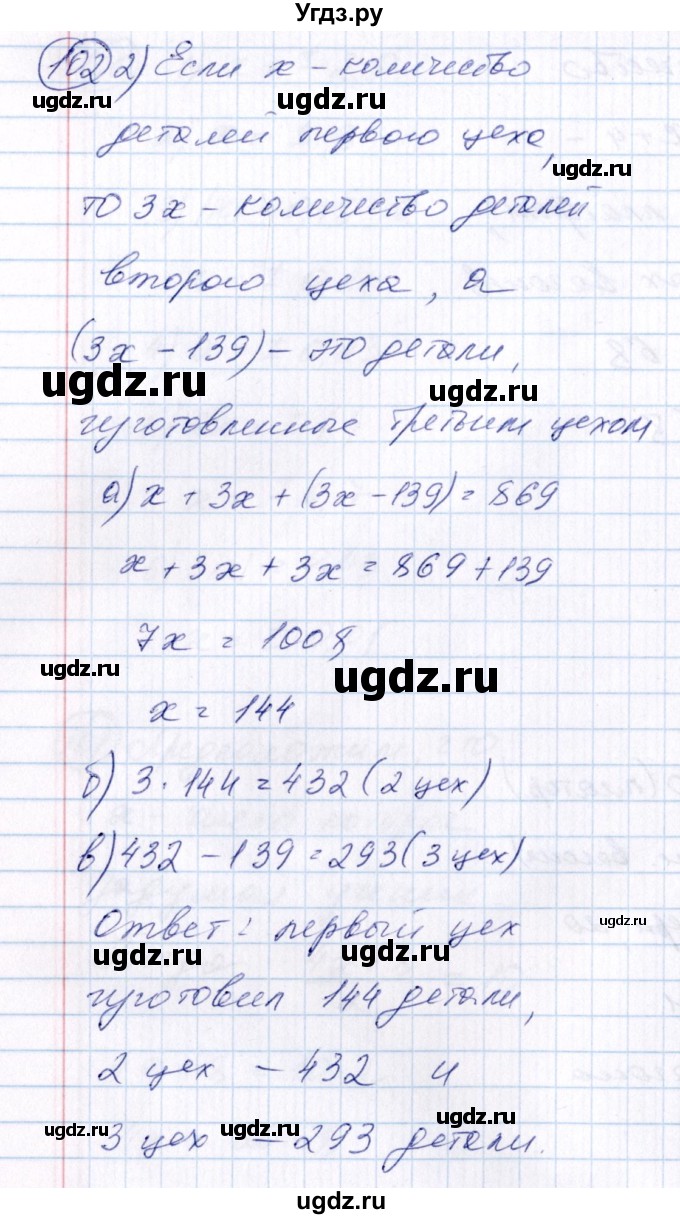 Угдз.ру
102 2) Если x – количество
ugdz.ru ugdz.ru
деталей первого цеха,
ugdz.ru
то 3x – количество деталей
второго цеха, а
(3x – 139) – это детали,
ugdz.ru ugdz.ru
изготовленные третьим цехом
а) x + 3x + (3x – 139) = 869
x + 3x + 3x = 869 + 139
7x = 1008
ugdz.ru ugdz.ru
x = 144
б) 3 · 144 = 432 (2 цех)
в) 432 – 139 = 293 (3 цех)
Ответ: первый цех
ugdz.ru ugdz.ru ugdz.ru
изготовил 144 детали,
2 цех – 432 и
ugdz.ru ugdz.ru ugdz.ru
3 цех – 293 детали.
ugdz.ru